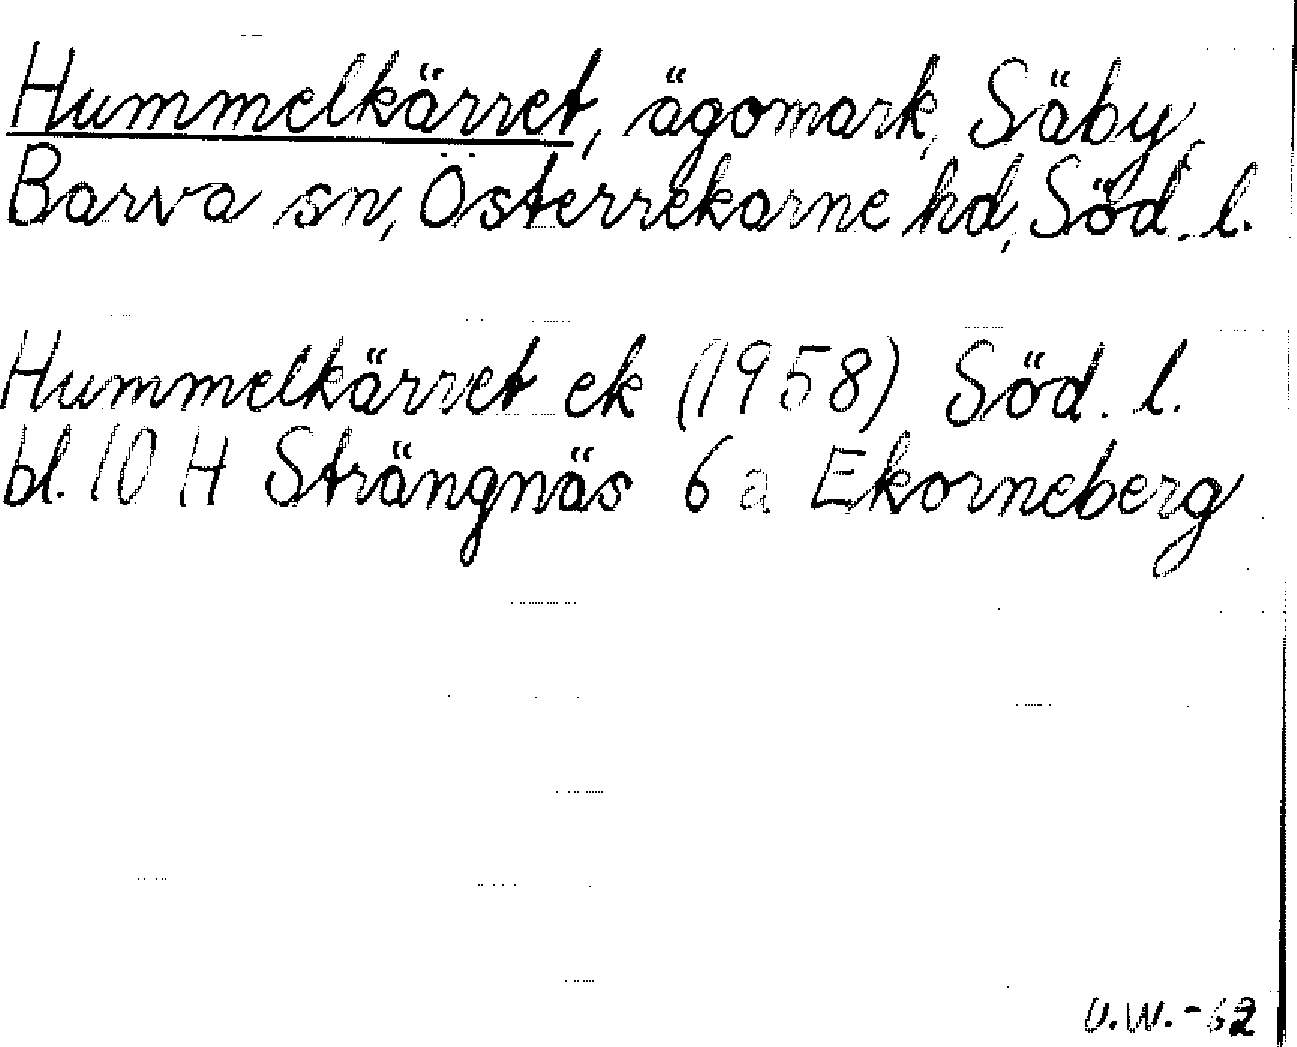 Hummelkärret, ägomark, Säby,
Barva sn, Österrekarne hd, Söd. l.
Hummelkärret ek (1958) Söd. l.
bl. 10 H Strängnäs 6 a Ekorneberg
U.W.-62